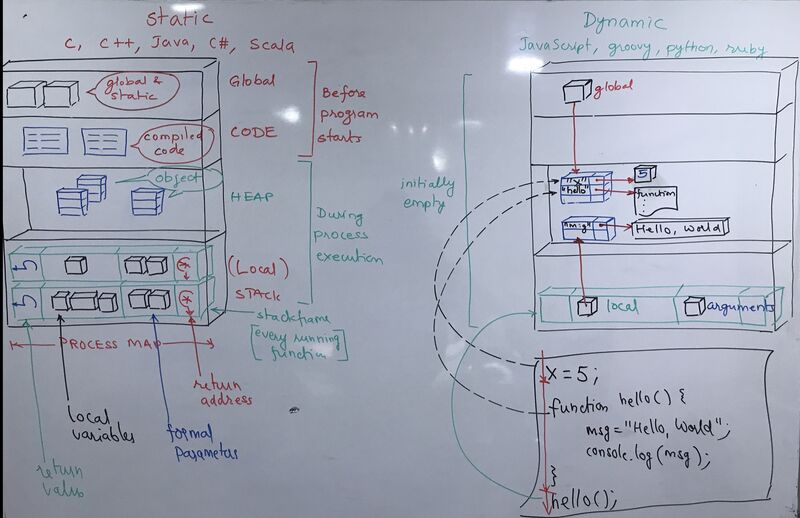 Static
C, C++, Java, C#, Scala
global &
static
Global
Before
program
starts
compiled
code
CODE
object
HEAP
During
process
execution
(Local)
STACK
stackframe
[every running
function]
PROCESS MAP
return
address
local
variables
formal
parameters
return
value
Dynamic
JavaScript, groovy, python, ruby
global
initially
empty
"x"
5
"hello"
function
"msg"
Hello, World
local
arguments
x = 5;
function hello() {
msg="Hello, World";
console.log(msg);
}
hello();